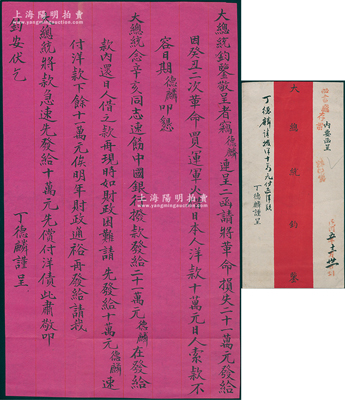 上海阳明拍卖有限公司
大總統鈞鑒敬呈者竊德麟連呈一函請將革命損失二十一萬元發給
因癸丑二次革命買運軍火日本人洋款十萬元日人索款不
容日期德麟叩懇
大總統念辛亥同志速飭中國銀行撥款發給二十一萬元德麟在發給
款內還日人借之款再現時如財政困難請先發給十萬元德麟速
付洋款下餘十一萬元俟明年財政通裕再發給請我
大總統將款急速先發給十萬元先償付洋債此肅敬叩
鈞安伏乞
丁德麟謹呈
內安函呈
大總統鈞鑒
丁德麟請撥洋十萬元付还洋債
丁德麟謹呈